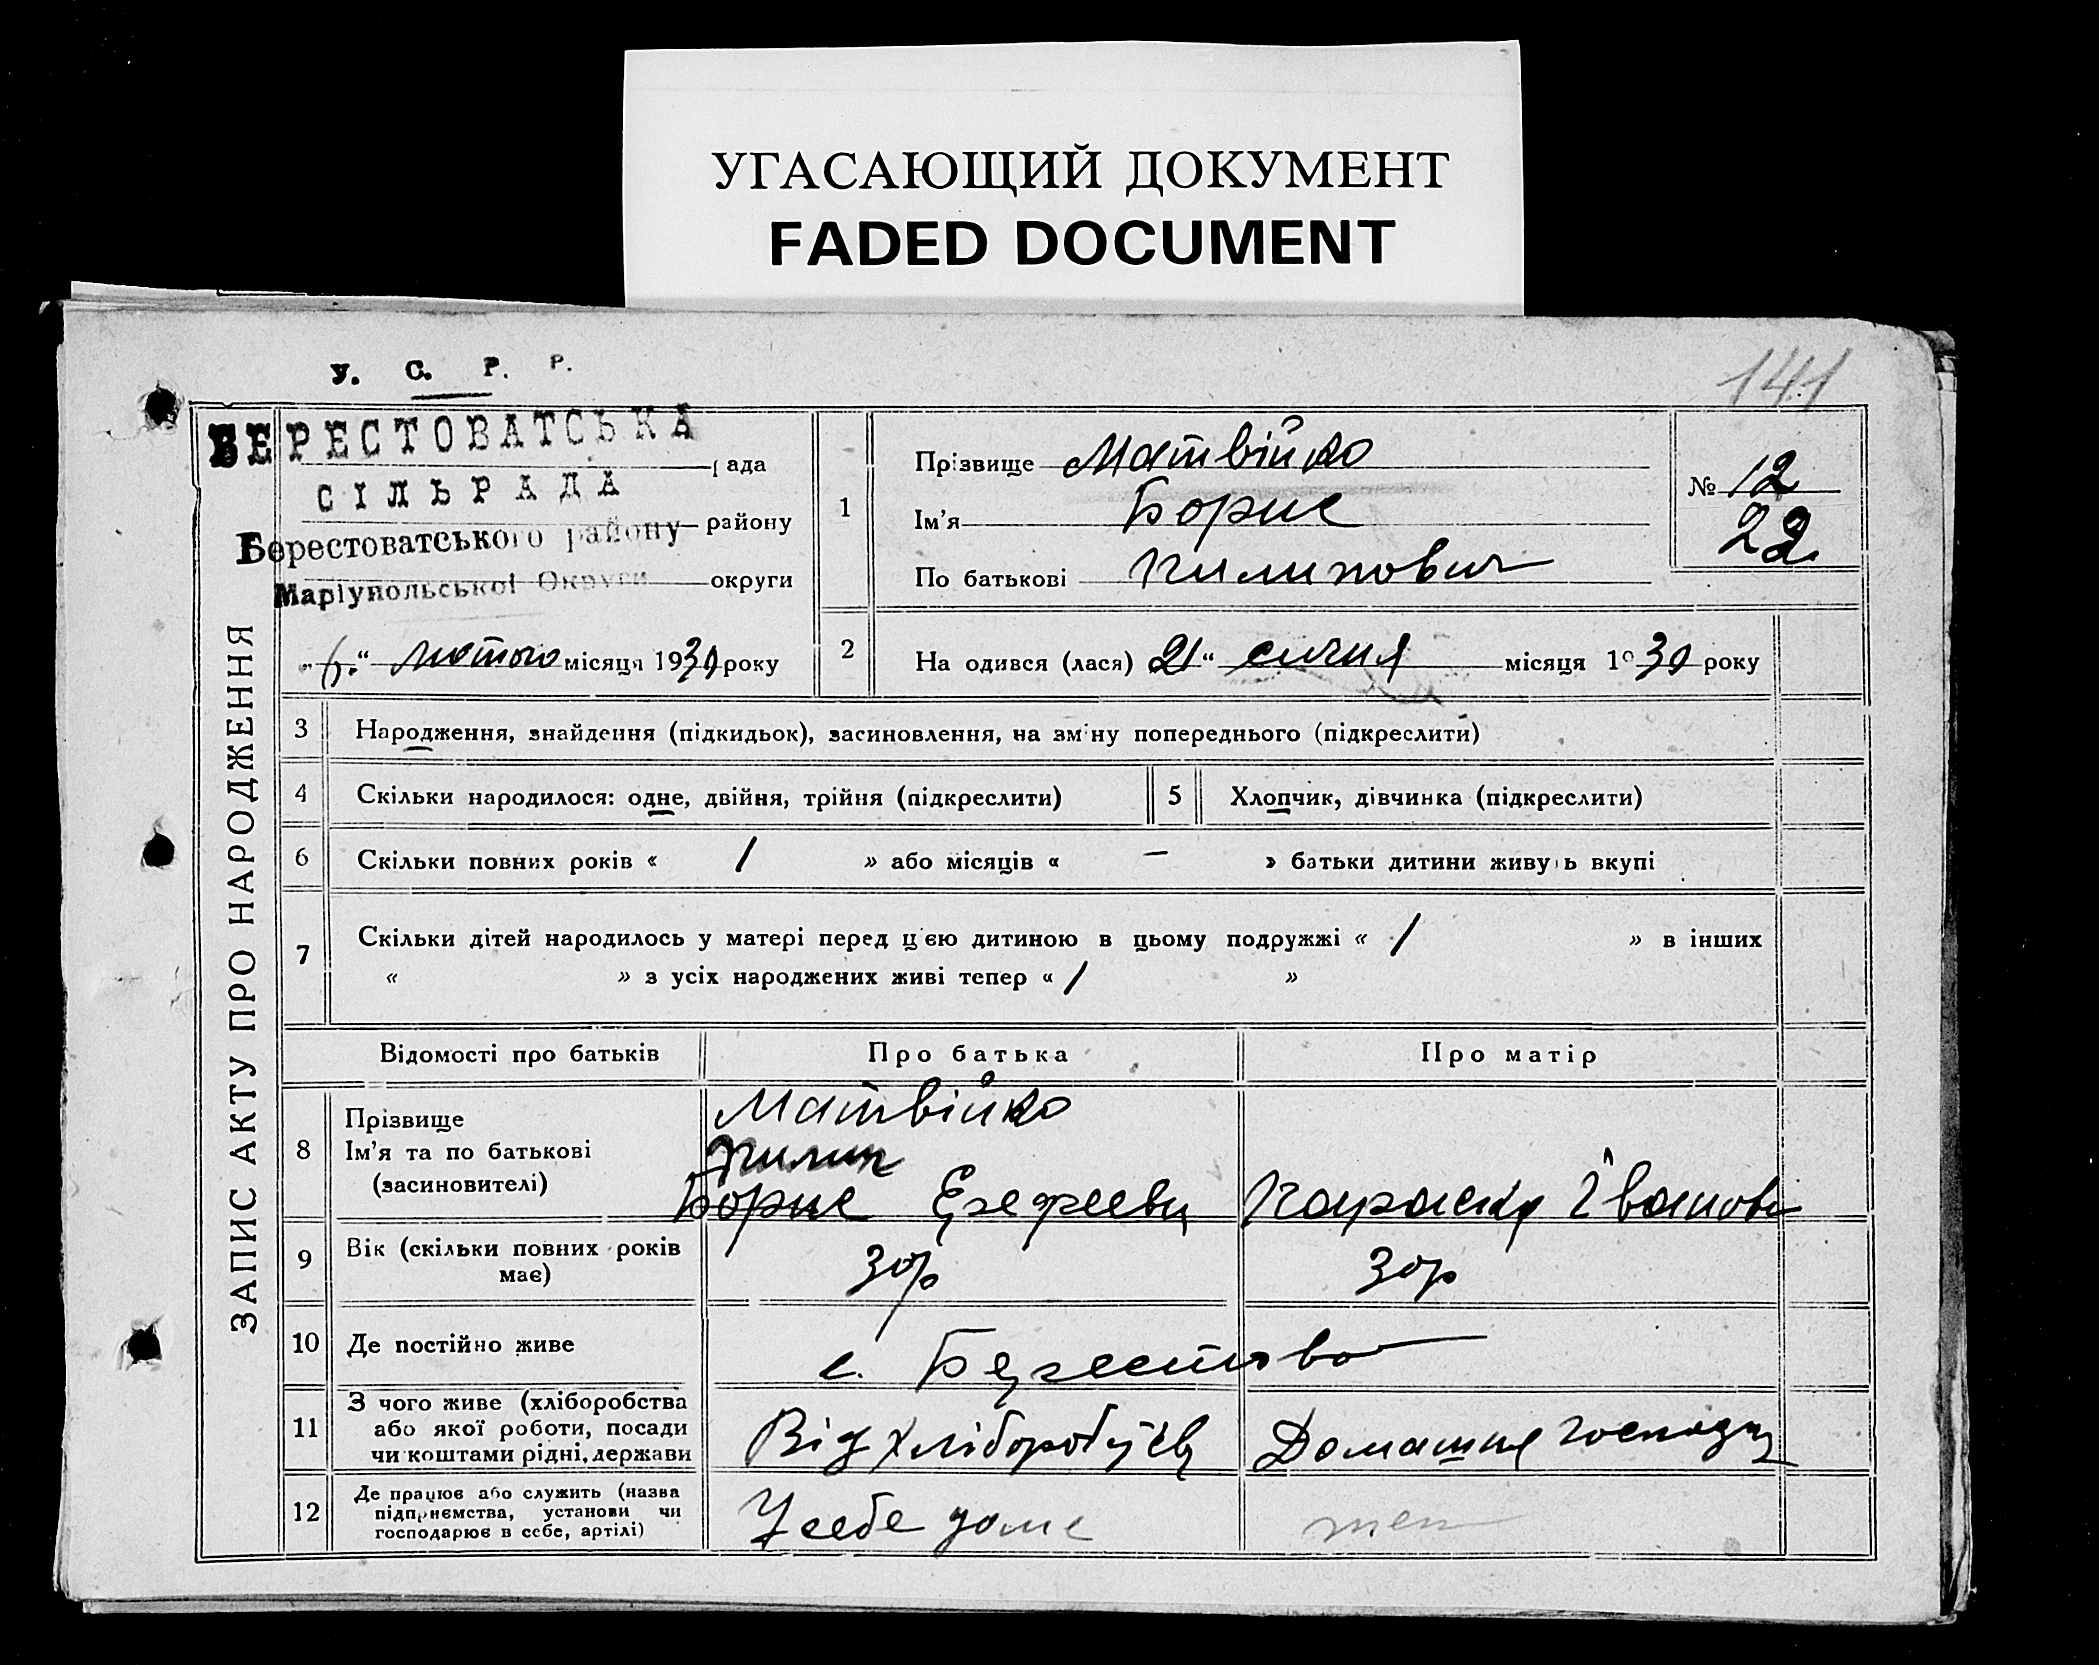 УГАСАЮЩИЙ ДОКУМЕНТ
FADED DOCUMENT
У. С. Р. Р.
141
БЕРЕСТОВАТСЬКА рада
СІЛЬРАДА
Берестоватського району району
Маріупольської Округи округи
"6" лютого місяця 1930 року
1
Прізвище Матвійко
Ім'я Борис
По батькові Пилипович
№ 12
22
2
На одився (лася) 21 " січня місяця 1930 року
ЗАПИС АКТУ ПРО НАРОДЖЕННЯ
3 Народження, знайдення (підкидьок), засиновлення, на зміну попереднього (підкреслити)
4 Скільки народилося: одне, двійня, трійня (підкреслити) 5 Хлопчик, дівчинка (підкреслити)
6 Скільки повних років « 1 » або місяців « — » батьки дитини живуть вкупі
7 Скільки дітей народилось у матері перед цією дитиною в цьому подружжі « 1 » в інших
« » з усіх народжених живі тепер « 1 »
Відомості про батьків Про батька Про матір
8
Прізвище Матвійко
Ім'я та по батькові Пилип
(засиновителі) Борис ПарасКа Іванов
9 Вік (скільки повних років має) 30р 30р
10 Де постійно живе с. Берестово
11 З чого живе (хліборобства
або якої роботи, посади
чи коштами рідні, держави
Від Домашня
12 Де працює або служить (назва
підприємства, установи чи
господарює в себе, артілі)
У себе дома теж